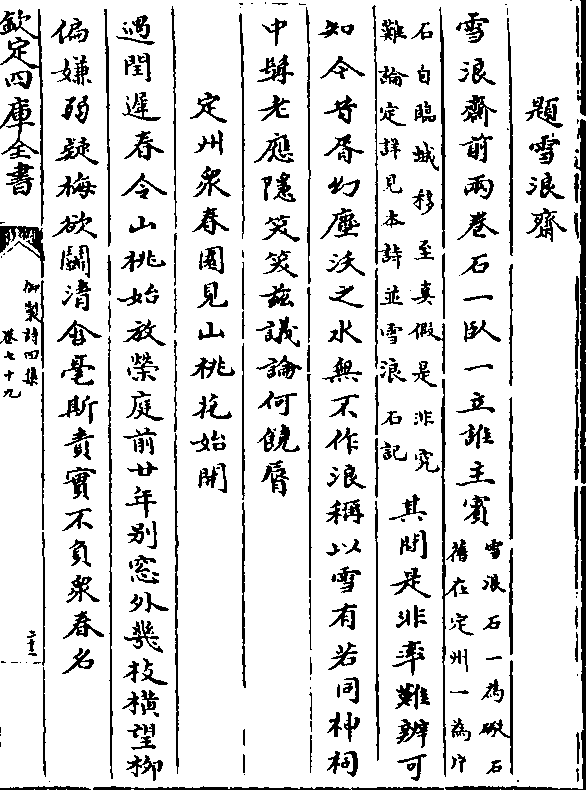 題雪浪齋
雪浪齋前兩卷石一臥一立誰主賓
雪浪石一為石
舊在定州一為片
石自臨城移至真假是非究
難論定詳見本詩並雪浪石記
其間是非率難辨可
知今昔胥幻塵沃之水無不作浪稱以雪有若同神祠
中髯老應隱笑笑茲議論何饒脣
定州衆春園見山桃花始開
遇閏遲春令山桃始放榮庭前廿年別窓外幾枝橫望柳
偏嫌弱疑梅欲鬭清含毫斯責實不負衆春名
欽定四庫全書
御製詩四集
卷七十九